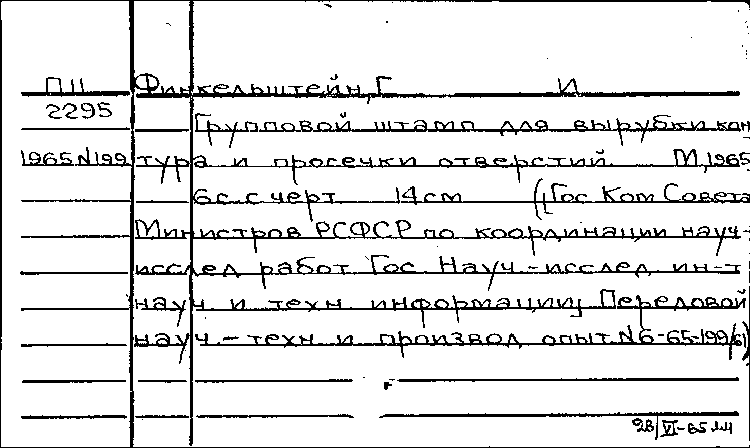 П11 Финкельштейн, Г И
2295
Групповой штамп для вырубки кон
1965 N199 тура и просечки отверстий. М, 1965
6с. с черт 14см (Гос Ком Совета
Министров РСФСР по координации науч-
исслед работ Гос. Науч.-исслед. ин-т
науч и техн информации Передовой
науч.- техн и производ опыт. N6-65-199/6)
28/VI-65